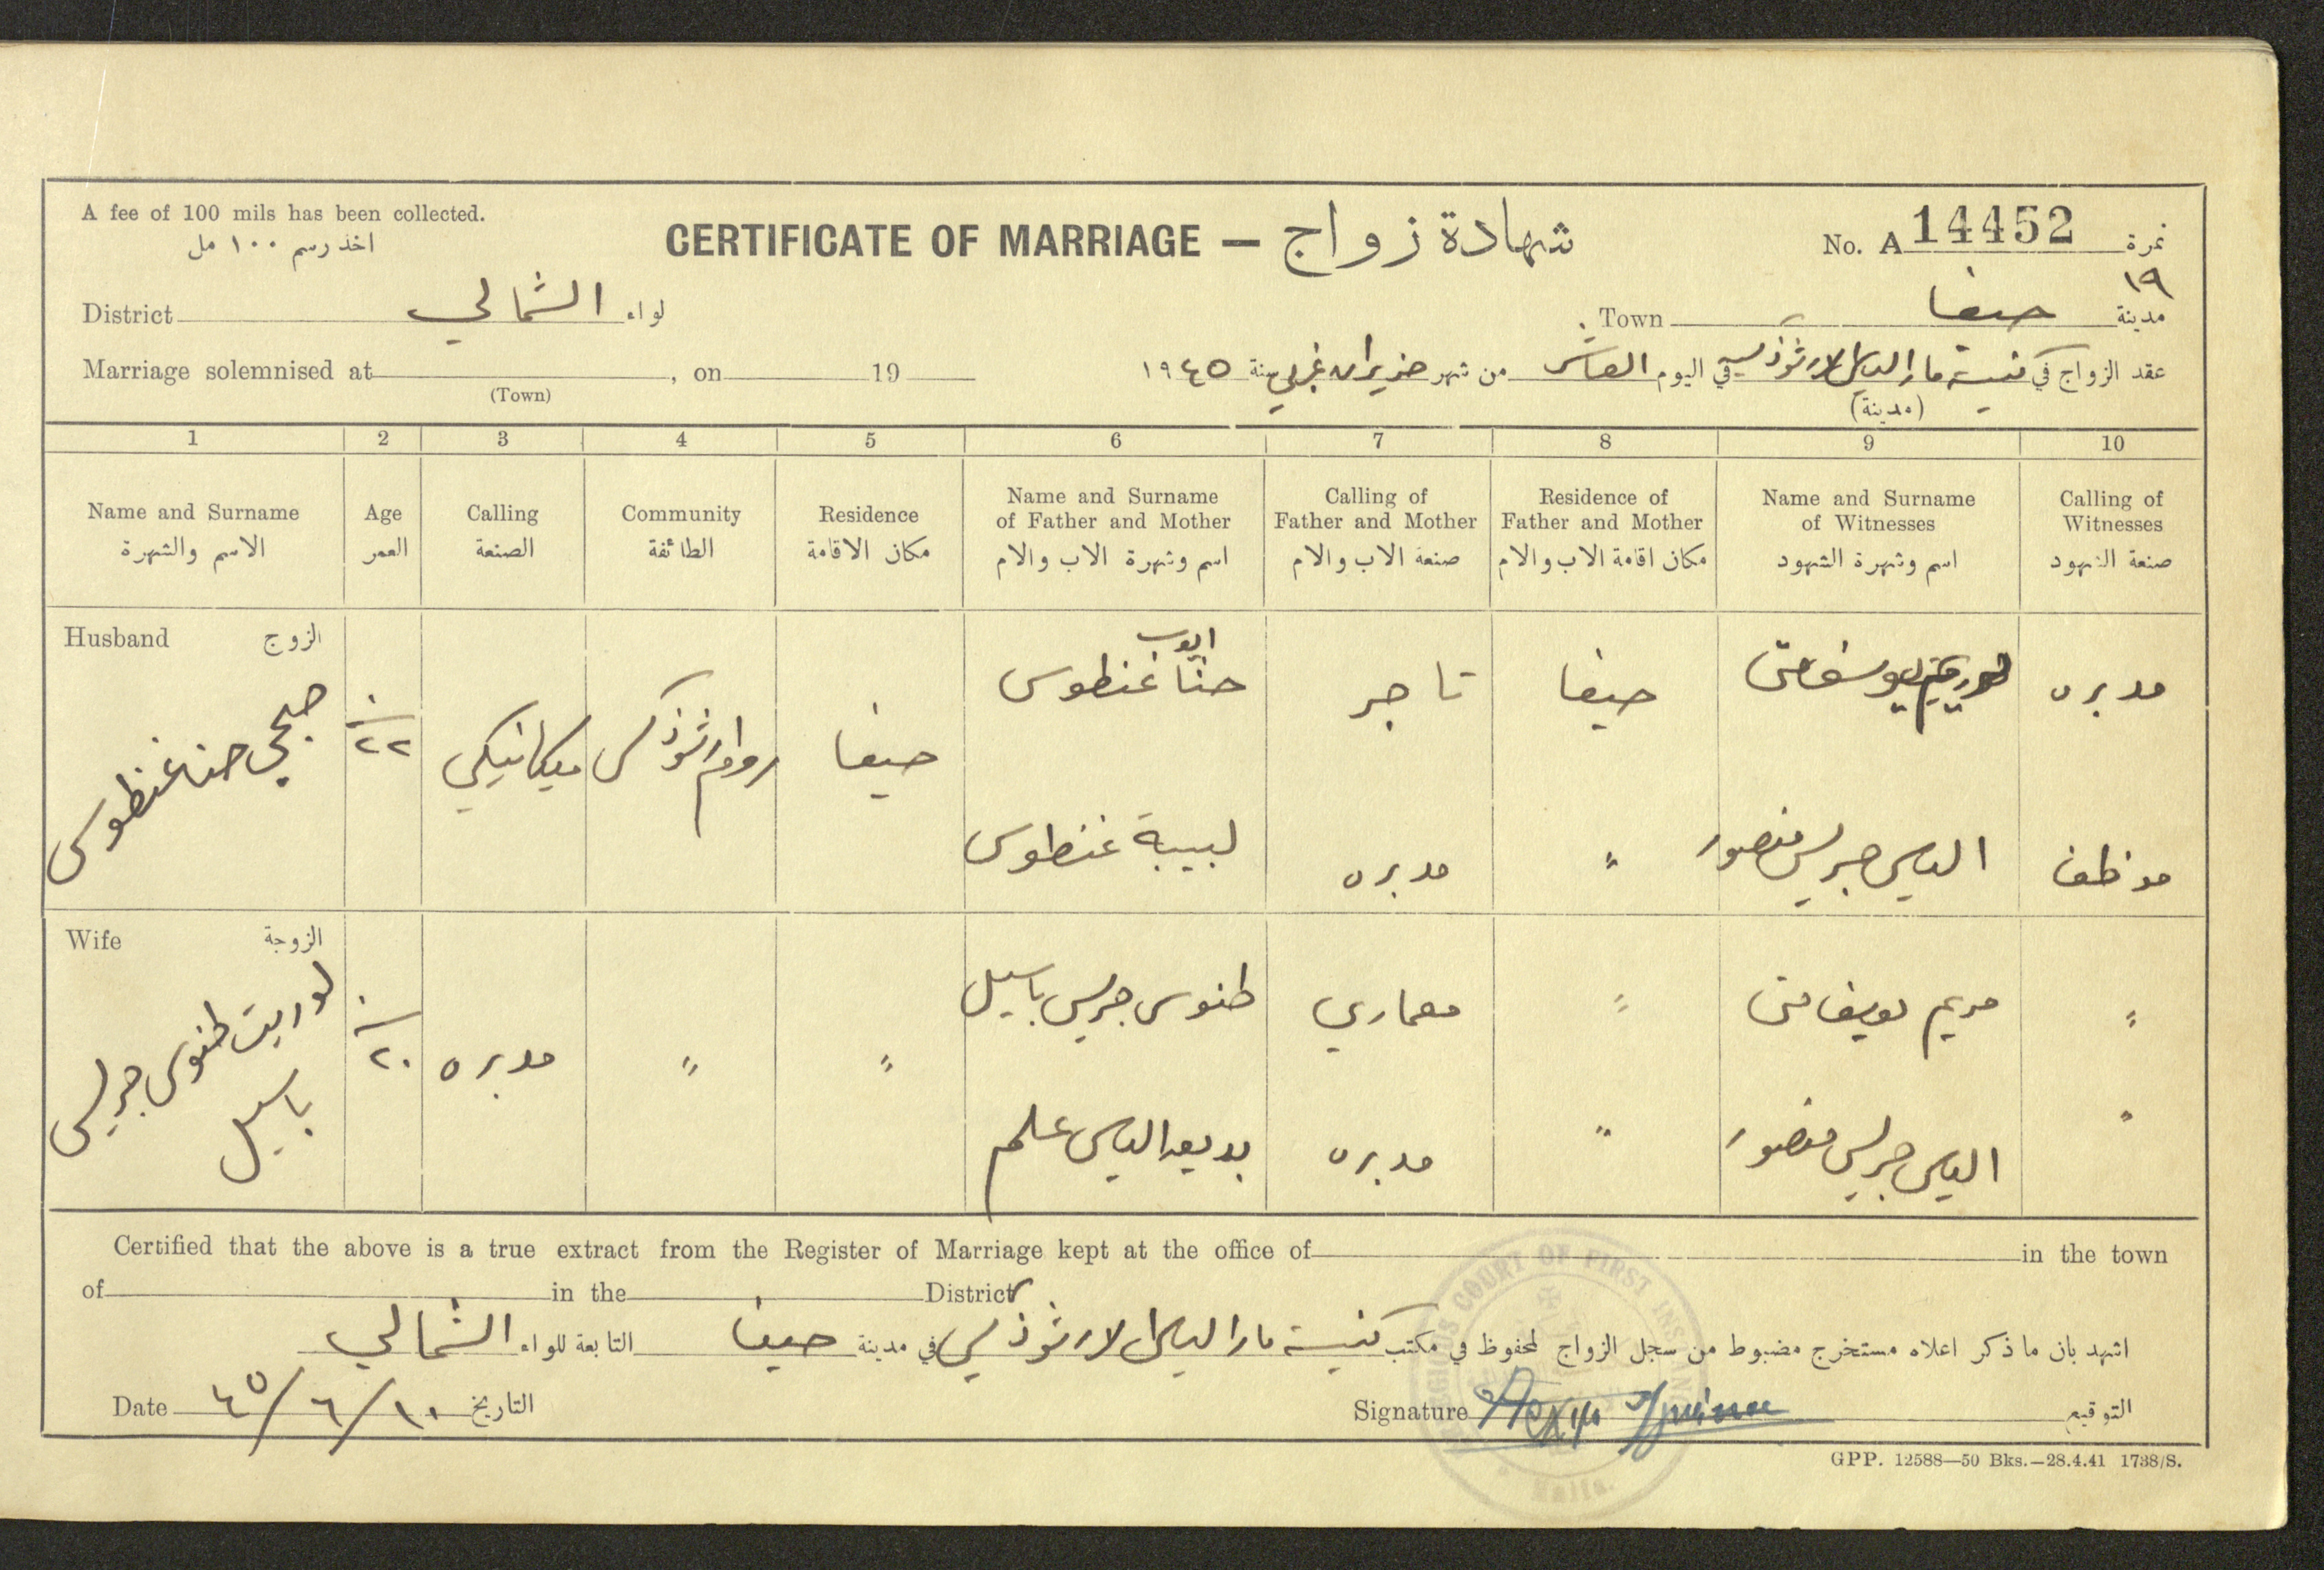 A fee of 100 mils has been collected.
اخذ رسم ١٠٠ مل
CERTIFICATE OF MARRIAGE — شهادة زواج
No. A 14452 نمرة
١٩
District الشمالي لواء
Town حيفا مدينة
Marriage solemnised at , on 19
(Town)
عقد الزواج في كنيسة مار الياس الارثوذكسية في اليوم العاشر من شهر حزيران غربي سنة ١٩٤٥
(مدينة)
1 2 3 4 5 6 7 8 9 10
Name and Surname
الاسم والشهرة
Age
العمر
Calling
الصنعة
Community
الطائفة
Residence
مكان الاقامة
Name and Surname
of Father and Mother
اسم وشهرة الاب والام
Calling of
Father and Mother
صنعة الاب والام
Residence of
Father and Mother
مكان اقامة الاب والام
Name and Surname
of Witnesses
اسم وشهرة الشهود
Calling of
Witnesses
صنعة الشهود
Husband الزوج
صبحي حنا غنطوس
٢٢
ميكانيكي
روم ارثوذكس
حيفا
ايوب
حنا غنطوس
تاجر
حيفا
مدبره
لبيبة غنطوس
مدبره
"
الياس جريس منصور
موظف
Wife الزوجة
لوريت طنوس جريس
باسيل
٢٠
مدبره
"
"
طنوس جريس باسيل
معماري
"
مريم يوسف متى
"
بديعه الياس علم
مدبره
"
الياس جريس منصور
"
Certified that the above is a true extract from the Register of Marriage kept at the office of in the town
of in the District
اشهد بان ما ذكر اعلاه مستخرج مضبوط من سجل الزواج المحفوظ في مكتب كنيسة مار الياس الارثوذكس في مدينة حيفا التابعة للواء الشمالي
Date ٤٥/٦/١٠ التاريخ
Signature التوقيع
RELIGIOUS COURT OF FIRST INSTANCE
Haifa.
GPP. 12588—50 Bks.—28.4.41 1738/S.